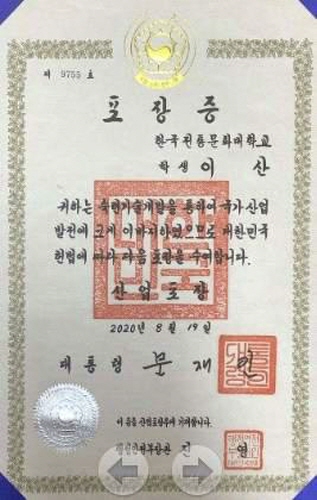 제 9755 호
포장증
한국전통문화대학교
학생 이 산
귀하는 숙련기술개발을 통하여 국가산업
발전에 크게 이바지하였으므로 대한민국
헌법에 따라 다음 포장을 수여합니다.
산업포장
2020년 8월 19일
대통령 문재인
이 증을 산업포장부에 기재합니다.
행정안전부장관 진 영